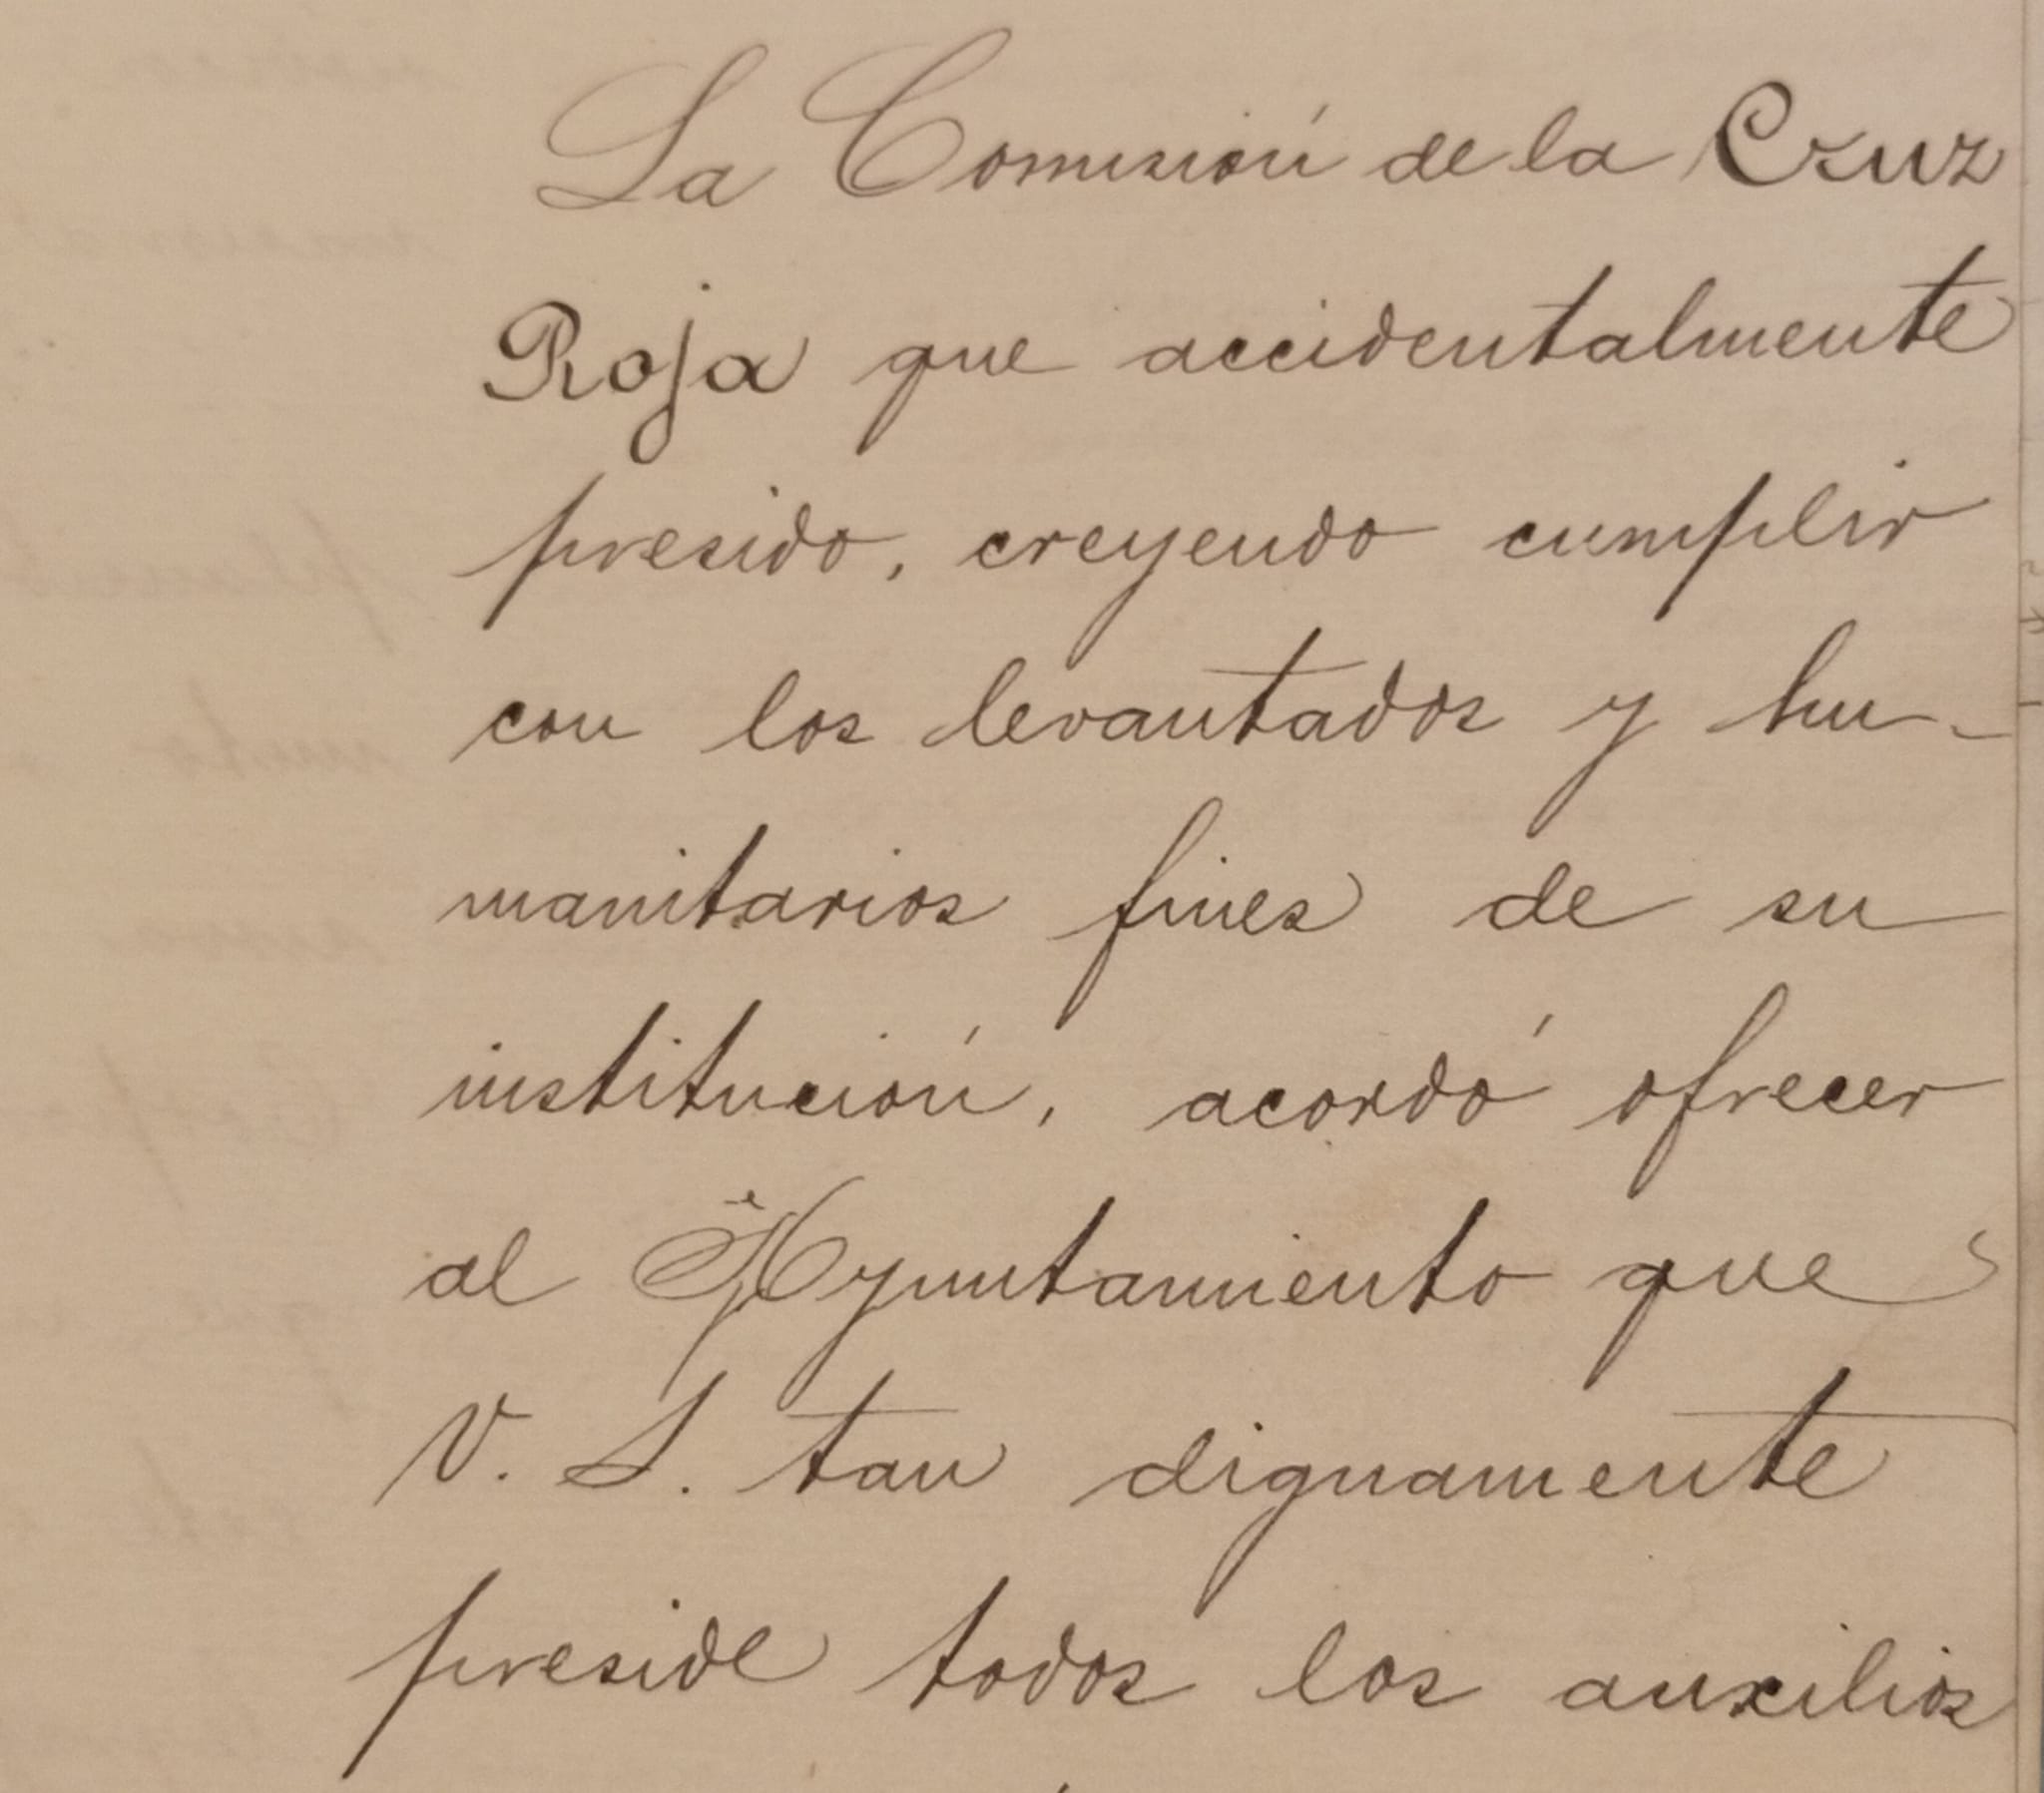 La Comisión de la Cruz
Roja que accidentalmente
presido, creyendo cumplir
con los levantados y hu-
manitarios fines de su
institución, acordó ofrecer
al Ayuntamiento que
V. S. tan dignamente
preside todos los auxilios